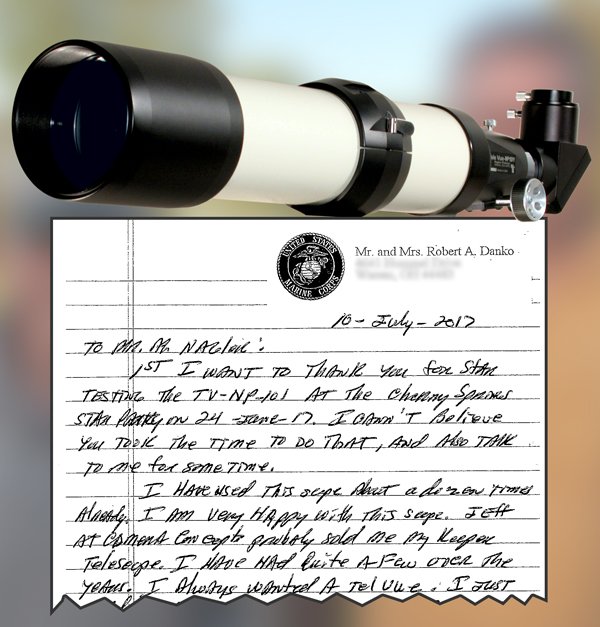 ele Vue-NP101
UNITED STATES
MARINE CORPS
Mr. and Mrs. Robert A. Danko
10-July-2017
TO MR. Al NAGler :
1ST I WANT TO THANK You for STAR
TESTING the TV-NP-101 AT The Cherry Springs
STAR PARTy on 24-June-17. I CANN'T Believe
You TOOK The TIME TO DO THAT, AND Also TALK
TO me for some time.
I HAVE used This scope About a dozen times
Already. I AM very HAppy with This scope. Jeff
AT CAMERA Concepts probably sold me my Keeper
Telescope. I HAVE HAd Quite A Few over The
years. I Always wanted A TelVue. I JUST